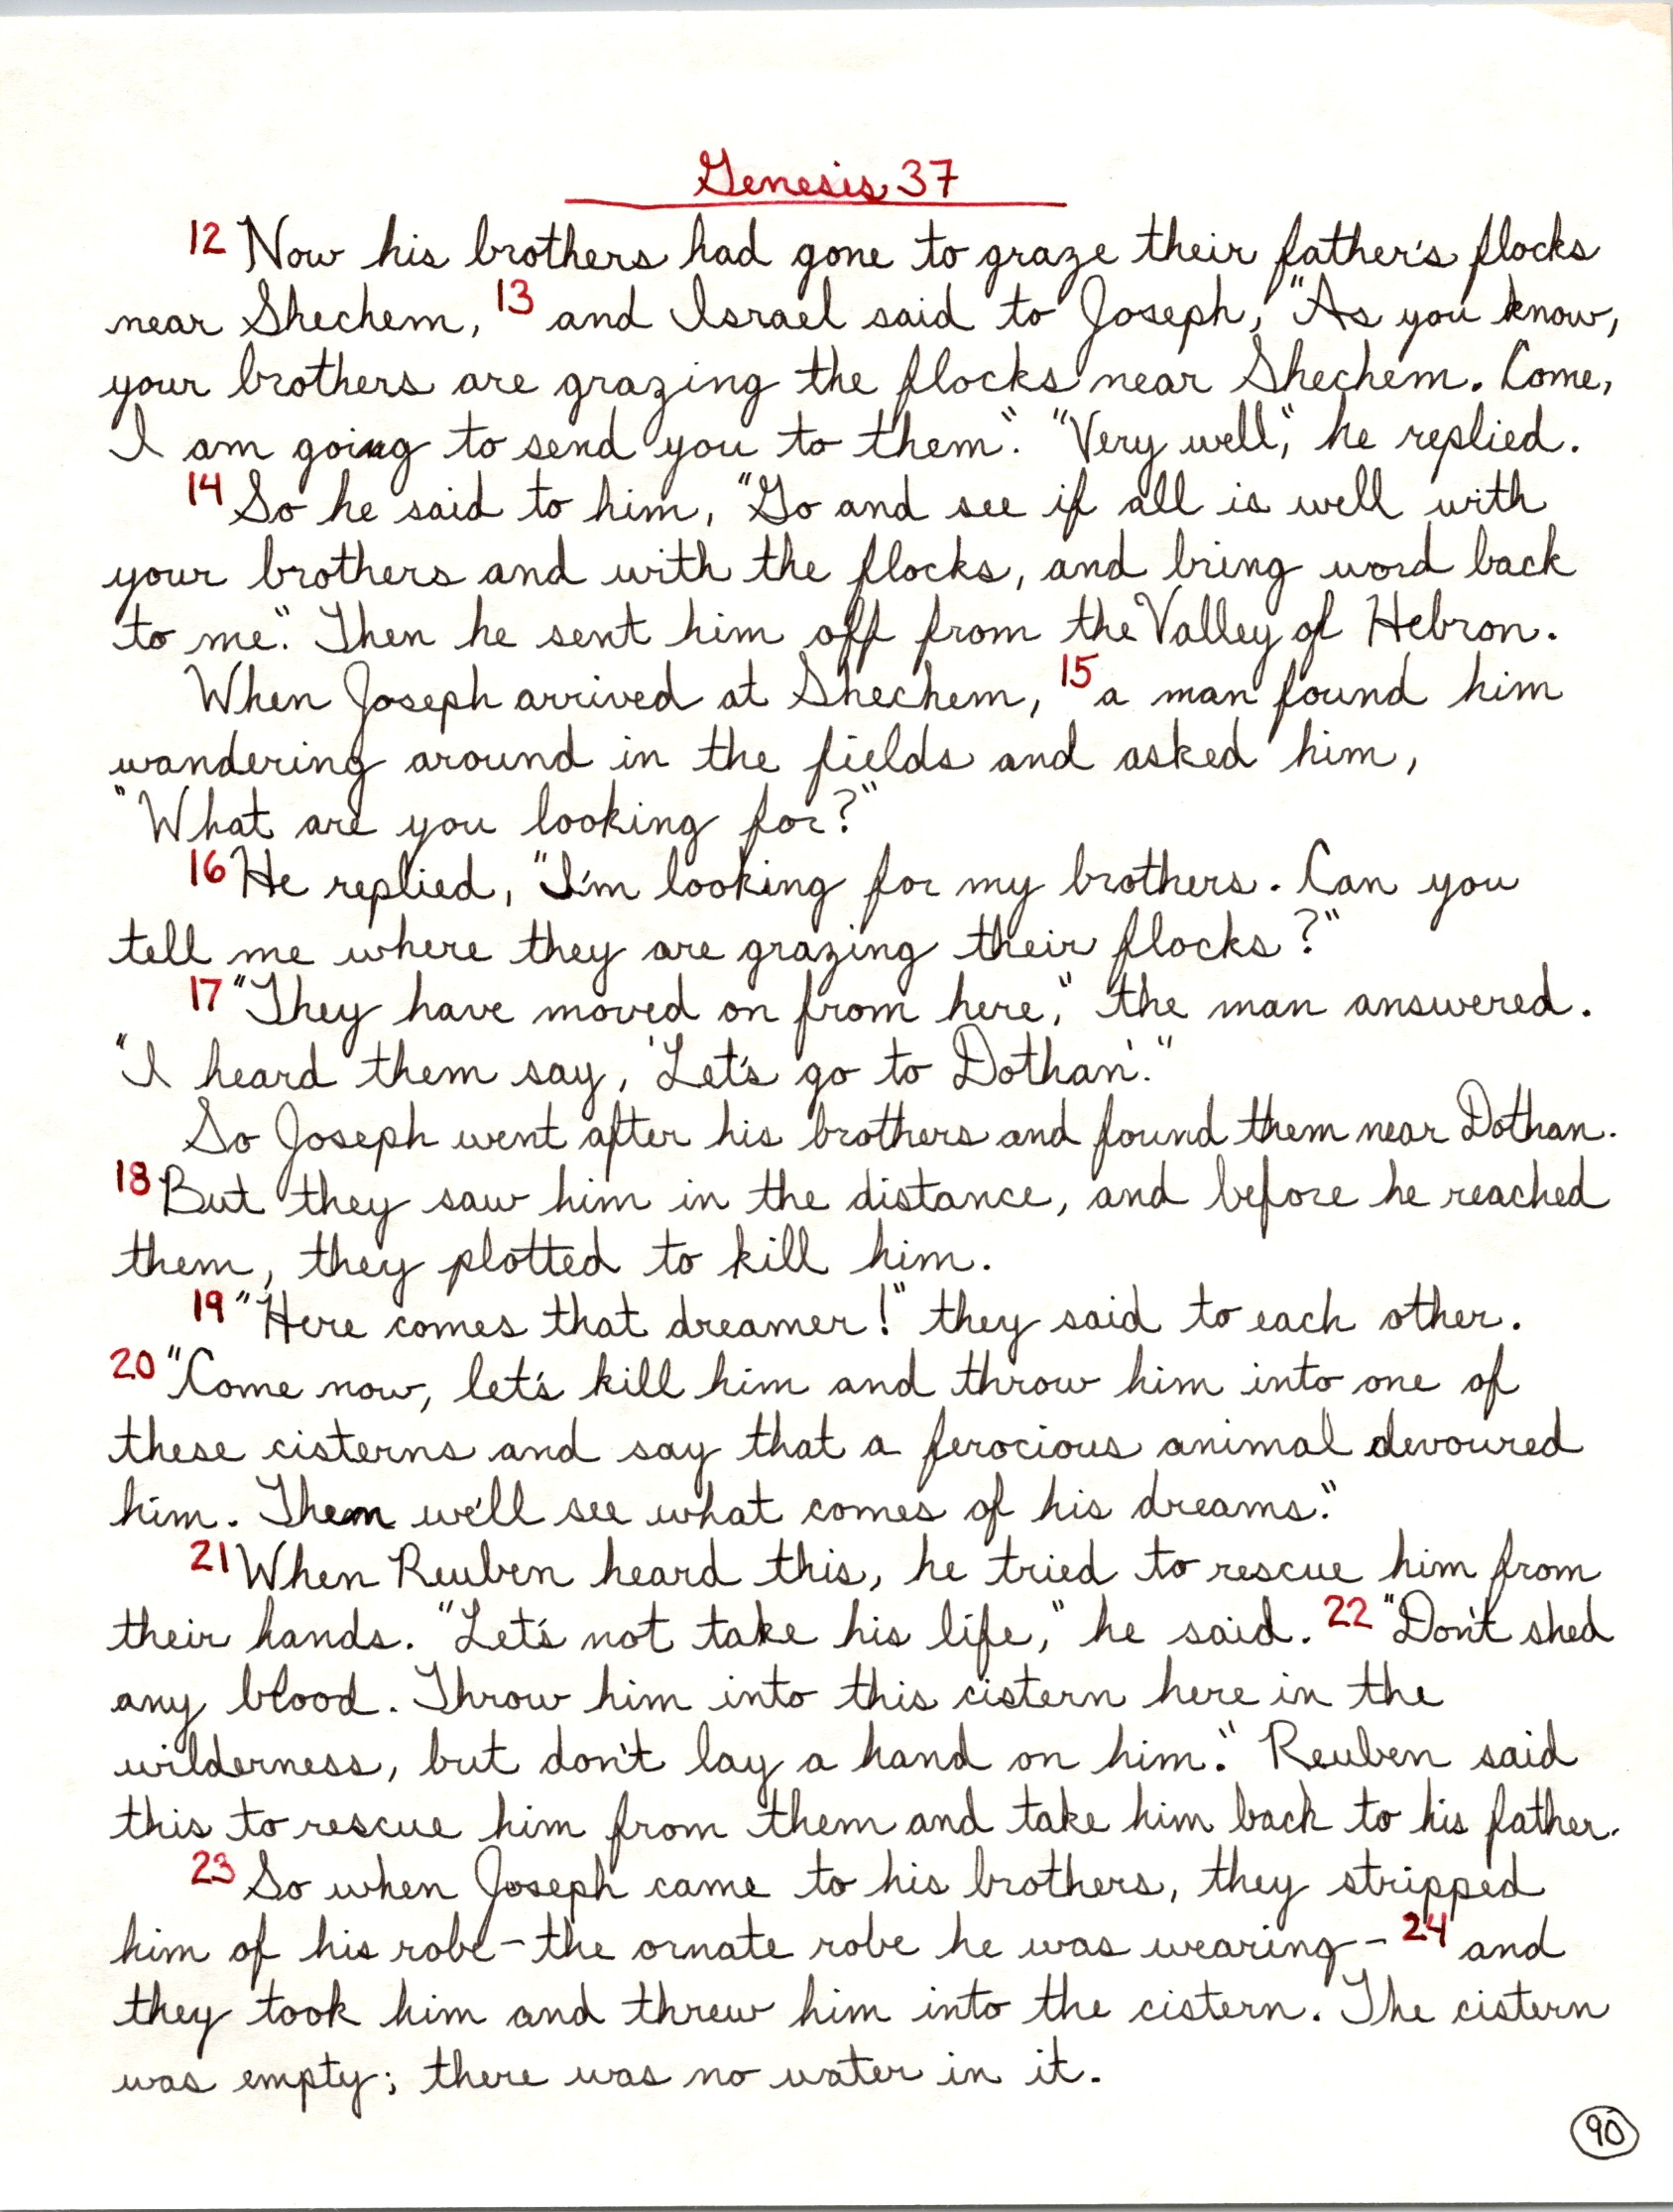 Genesis 37
12 Now his brothers had gone to graze their father's flocks
near Shechem, 13 and Israel said to Joseph, "As you know,
your brothers are grazing the flocks near Shechem. Come,
I am going to send you to them." "Very well," he replied.
14 So he said to him, "Go and see if all is well with
your brothers and with the flocks, and bring word back
to me." Then he sent him off from the Valley of Hebron.
When Joseph arrived at Shechem, 15 a man found him
wandering around in the fields and asked him,
"What are you looking for?"
16 He replied, "I'm looking for my brothers. Can you
tell me where they are grazing their flocks?"
17 "They have moved on from here," the man answered.
"I heard them say, 'Let's go to Dothan'."
So Joseph went after his brothers and found them near Dothan.
18 But they saw him in the distance, and before he reached
them, they plotted to kill him.
19 "Here comes that dreamer!" they said to each other.
20 "Come now, let's kill him and throw him into one of
these cisterns and say that a ferocious animal devoured
him. Then we'll see what comes of his dreams."
21 When Reuben heard this, he tried to rescue him from
their hands. "Let's not take his life," he said. 22 "Don't shed
any blood. Throw him into this cistern here in the
wilderness, but don't lay a hand on him." Reuben said
this to rescue him from them and take him back to his father.
23 So when Joseph came to his brothers, they stripped
him of his robe - the ornate robe he was wearing - 24 and
they took him and threw him into the cistern. The cistern
was empty; there was no water in it.
90